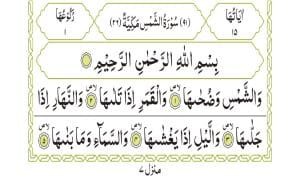 اٰيَاتُهَا ١٥ (٩١) سُوْرَةُ الشَّمْسِ مَكِّيَّةٌ (٢٦) رُكُوْعُهَا ١
بِسْمِ اللهِ الرَّحْمٰنِ الرَّحِيْمِ
وَالشَّمْسِ وَضُحٰىهَا ١ وَالْقَمَرِ اِذَا تَلٰىهَا ٢ وَالنَّهَارِ اِذَا
جَلّٰىهَا ٣ وَالَّيْلِ اِذَا يَغْشٰىهَا ٤ وَالسَّمَآءِ وَمَا بَنٰىهَا ٥
منزل ٧